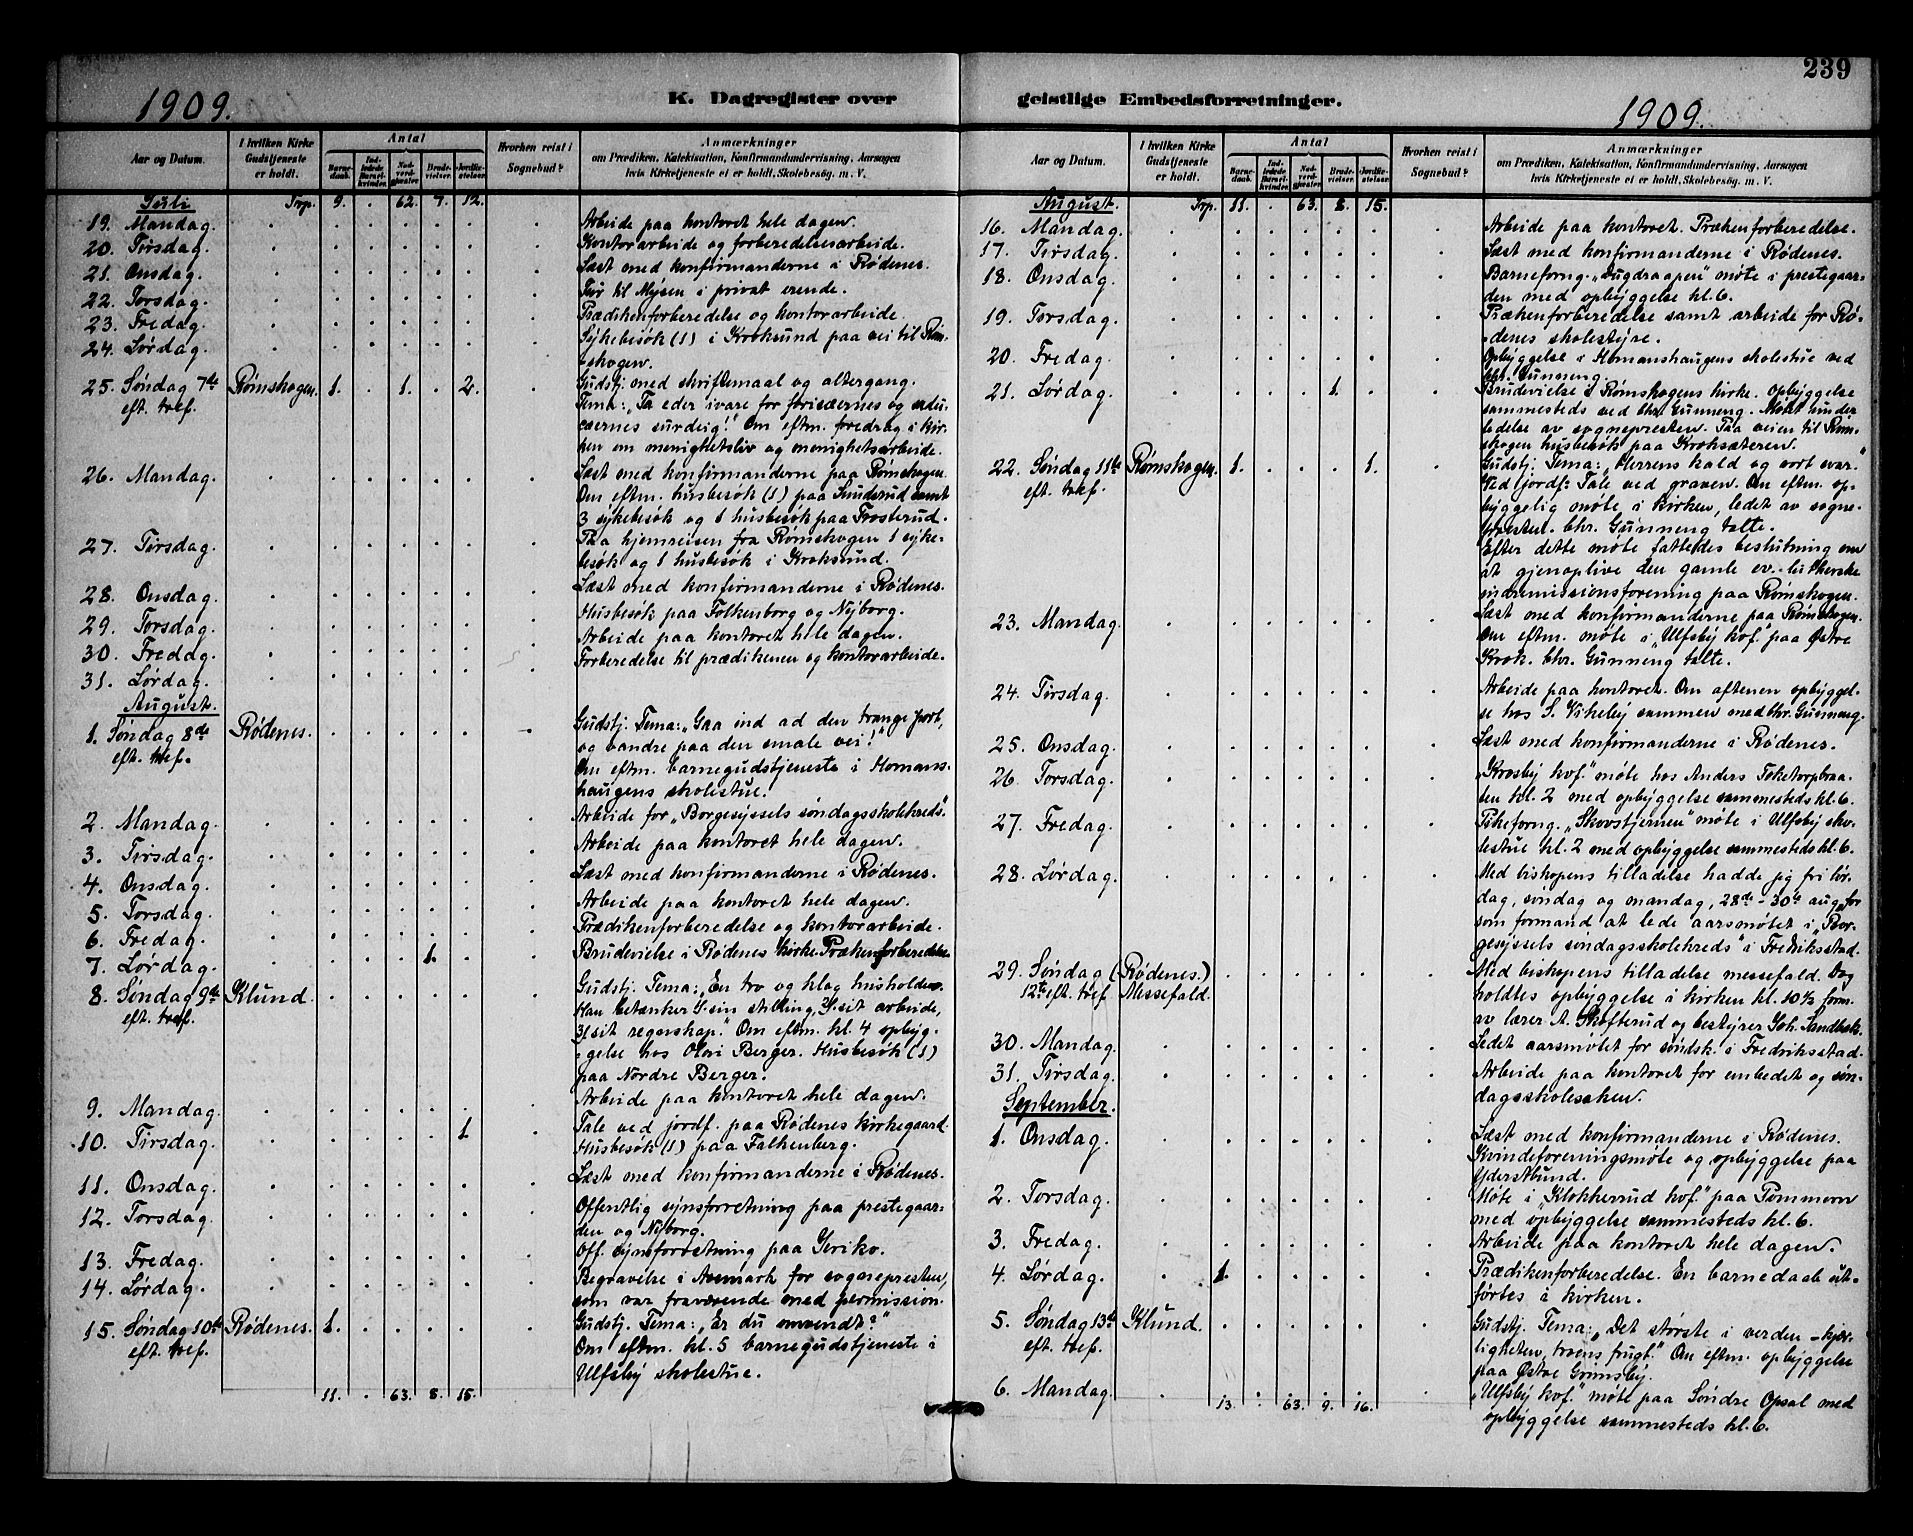 239
1909.
K. Dagregister over
Aar og Datum.
I hvilken Kirke Gudstjeneste er holdt.
Antal
Barnedaab.
Indledede Barselkvinder.
Nadverdgjæster.
Brudevielser.
Jordfæstelser.
Hvorhen reist i Sognebud?
Anmærkninger
om Prædiken, Katekisation, Konfirmandundervisning, Aarsagen
hvis Kirketjeneste ei er holdt, Skolebesøg, m. V.
Juli Trp. 9. . 62. 7. 12.
19. Mandag. Arbeide paa kontoret hele dagen.
20. Tirsdag. Kontorarbeide og forberedelsesarbeide.
21. Onsdag. Læst med konfirmanderne i Rødenes.
22. Torsdag. Tur til Mysen i privat erende.
23. Fredag. Prædikenforberedelse og kontorarbeide.
24. Lørdag. Sykebesøk (1) i Kroksund paa vei til Røm-
skogen.
25. Søndag 7de Rømskogen. 1. . 1. . 2. Gudstj. med skriftemaal og altergang.
eft. tref. Tema: „Ta eder ivare for farisæernes og sadu-
cæernes surdeig!" Om eftm. foredrag i kir-
ken om menighetsliv og menighetsarbeide.
26. Mandag. Læst med konfirmanderne paa Rømskogen.
Om eftm. husbesøk (1) paa Sunderud samt
3 sykebesøk og 1 husbesøk paa Trosterud.
27. Tirsdag. Paa hjemreisen fra Rømskogen 1 syke-
besøk og 1 husbesøk i Kroksund.
28. Onsdag. Læst med konfirmanderne i Rødenes.
29. Torsdag. Husbesøk paa Folkenborg og Nyborg.
30. Fredag. Arbeide paa kontoret hele dagen.
31. Lørdag. Forberedelse til prædikenen og kontorarbeide.
August.
1. Søndag 8de Rødenes. Gudstj. Tema: „Gaa ind ad den trange port,
eft. tref. og vandre paa den smale vei!"
Om eftm. barnegudstjeneste i Homans-
haugens skolestue.
2. Mandag. Arbeide for „Borgesyssels søndagsskolekreds".
3. Tirsdag. Arbeide paa kontoret hele dagen.
4. Onsdag. Læst med konfirmanderne i Rødenes.
5. Torsdag. Arbeide paa kontoret hele dagen.
6. Fredag. Prædikenforberedelse og kontorarbeide.
7. Lørdag. 1. Brudevielse i Rødenes kirke. Prækenforberedelse.
8. Søndag 9de Klund. Gudstj. Tema: „En tro og klog husholder.
eft. tref. Han betænker 1) sin stilling, 2) sit arbeide,
3) sit regnskap." Om eftm. kl. 4 opbyg-
gelse hos Olavi Berger. Husbesøk (1)
paa Nordre Berger.
9. Mandag. Arbeide paa kontoret hele dagen.
10. Tirsdag. 1. Tale ved jordf. paa Rødenes kirkegaard.
Husbesøk (1) paa Falkenberg.
11. Onsdag. Læst med konfirmanderne i Rødenes.
12. Torsdag. Offentlig synsforretning paa prestegaar-
den og Nyborg.
13. Fredag. Off. synsforretning paa Jeriko.
14. Lørdag. Begravelse i Aremark for sognepresten,
som var fraværende med permission.
15. Søndag 10de Rødenes. 1. Gudstj. Tema: „Er du omvendt?"
eft. tref. Om eftm. kl. 5 barnegudstjeneste i
Ulfsby skolestue.
11. . 63. 8. 15.
geistlige Embedsforretninger.
1909.
Aar og Datum.
I hvilken Kirke Gudstjeneste er holdt.
Antal
Barnedaab.
Indledede Barselkvinder.
Nadverdgjæster.
Brudevielser.
Jordfæstelser.
Hvorhen reist i Sognebud?
Anmærkninger
om Prædiken, Katekisation, Konfirmandundervisning, Aarsagen
hvis Kirketjeneste ei er holdt, Skolebesøg, m. V.
August. Trp. 11. . 63. 8. 15.
16. Mandag. Arbeide paa kontoret. Prækenforberedelse.
17. Tirsdag. Læst med konfirmanderne i Rødenes.
18. Onsdag. Barneforng. „Dugdraapen" møte i prestegaar-
den med opbyggelse kl. 6.
19. Torsdag. Prækenforberedelse samt arbeide for Rø-
denes skolestyre.
20. Fredag. Opbyggelse i Homanshaugens skolestue ved
chr. Gunneng.
21. Lørdag. 1. Brudevielse i Rømskogens kirke. Opbyggelse
sammesteds ved chr. Gunneng. Møtet under
ledelse av sognepresten. Paa veien til Røm-
skogen husbesøk paa Kroksæteren.
22. Søndag 11te Rømskogen. 1. 1. Gudstj. Tema: „Herrens kald og vort svar."
eft. tref. Ved jordf. Tale ved graven. Om eftm. op-
byggelig møte i kirken, ledet av sogne-
presten. Chr. Gunneng talte.
Efter dette møte fattedes beslutning om
at gjenoplive den gamle ev.-lutherske
indremissionsforening paa Rømskogen.
23. Mandag. Læst med konfirmanderne paa Rømskogen.
Om eftm. møte i „Ulfsby kof. paa Østre
Krok. Chr. Gunneng talte.
24. Tirsdag. Arbeide paa kontoret. Om aftenen opbyggel-
se hos S. Vikeby sammen med chr. Gunneng.
25. Onsdag. Læst med konfirmanderne i Rødenes.
26. Torsdag. „Krosby kof." møte hos Anders Toketorpbraa-
ten kl. 2 med opbyggelse sammesteds kl. 6.
27. Fredag. Pikeforng. „Skovstjernen" møte i Ulfsby sko-
lestue kl. 2 med opbyggelse sammesteds kl. 6.
28. Lørdag. Med biskopens tilladelse hadde jeg fri lør-
dag, søndag og mandag, 28de - 30te aug. for
som formand at lede aarsmøtet i „Bor-
gesyssels søndagsskolekreds" i Fredriksstad.
29. Søndag (Rødenes.) Med biskopens tilladelse messefald. Dog
12te eft. tref. Messefald. holdtes opbyggelse i kirken kl. 10½ form.
av lærer A. Skofterud og bestyrer Joh. Sandbæk.
30. Mandag. Ledet aarsmøtet for søndsk. i Fredriksstad.
31. Tirsdag. Arbeide paa kontoret for embedet og søn-
dagsskolesaken.
September.
1. Onsdag. Læst med konfirmanderne i Rødenes.
Kvindeforeningsmøte og opbyggelse paa
Yderstbund.
2. Torsdag. Møte i „Klokkerud kof." paa Tømmern
med opbyggelse sammesteds kl. 6.
3. Fredag. Arbeide paa kontoret hele dagen.
4. Lørdag. 1. Prædikenforberedelse. En barnedaab ut-
førtes i kirken.
5. Søndag 13de Klund. Gudstj. Tema: „Det største i verden - kjær-
eft. tref. ligheten, troens frugt." Om eftm. opbyggelse
paa Østre Grimsby.
6. Mandag. „Ulfsby kof." møte paa Søndre Opsal med
opbyggelse sammesteds kl. 6.
13. . 63. 9. 16.